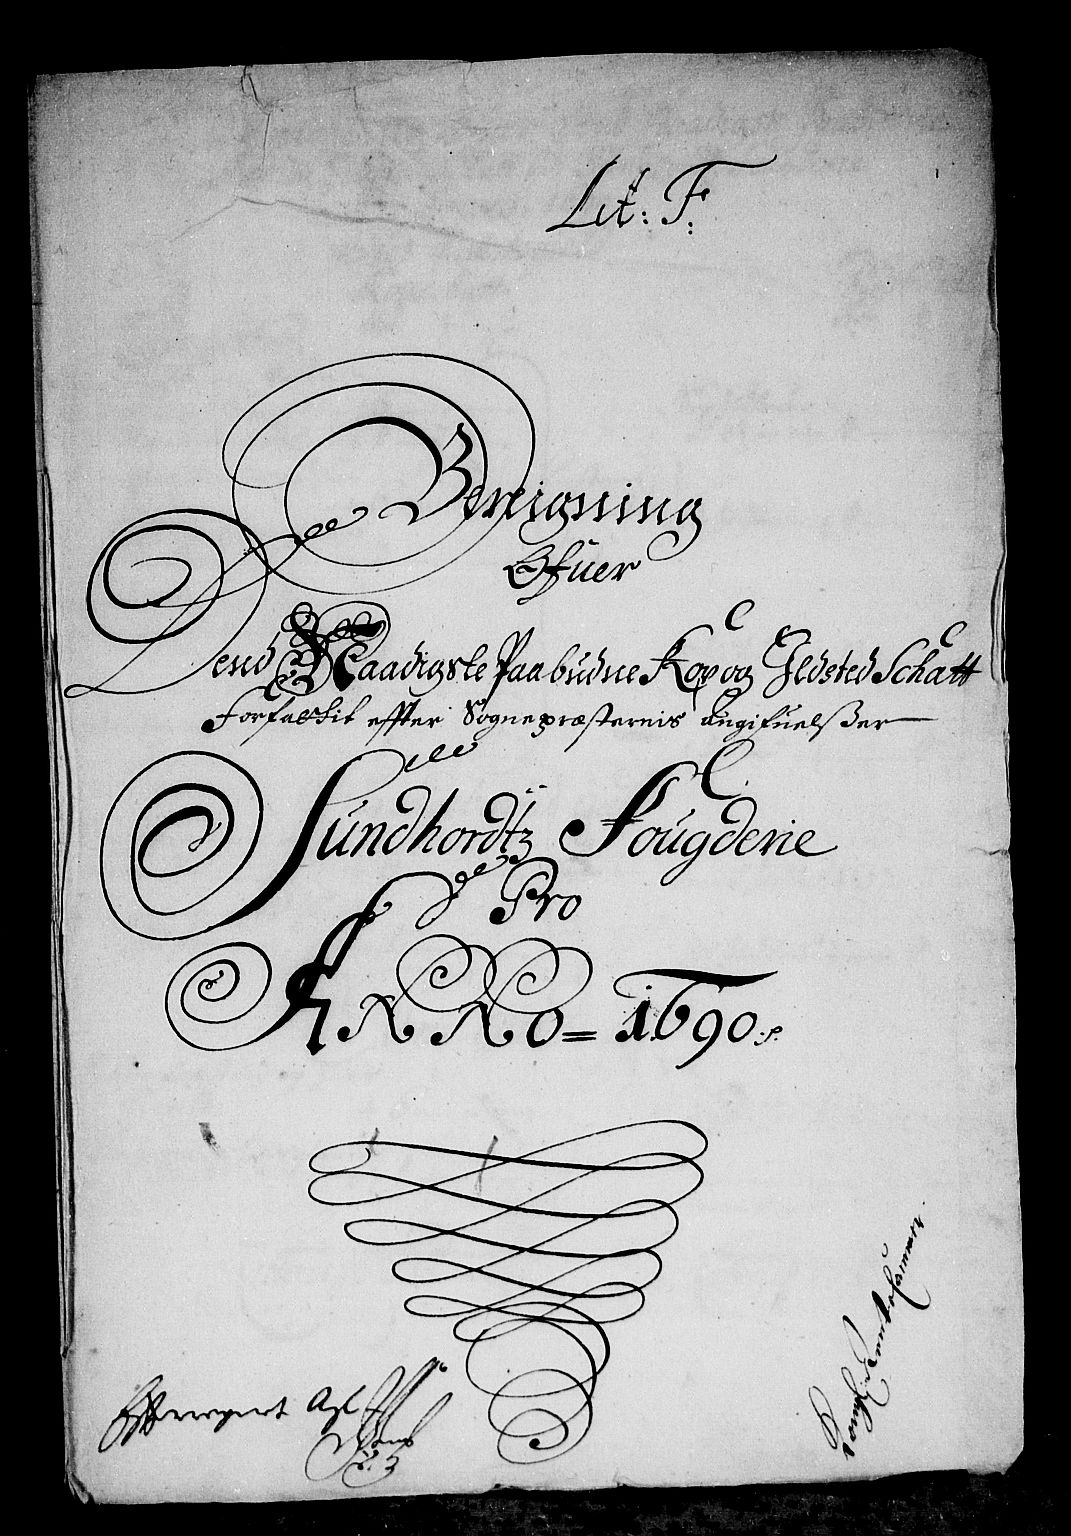 Lit: F:
Bereigning
Ofuer
Dend Naadigste Paabudne Kop og Ildsted Schatt
Forfattit effter Sognepræsternis Angifuelsßer
Sundhordtz Fougderie
Pro
ANNO = 1690